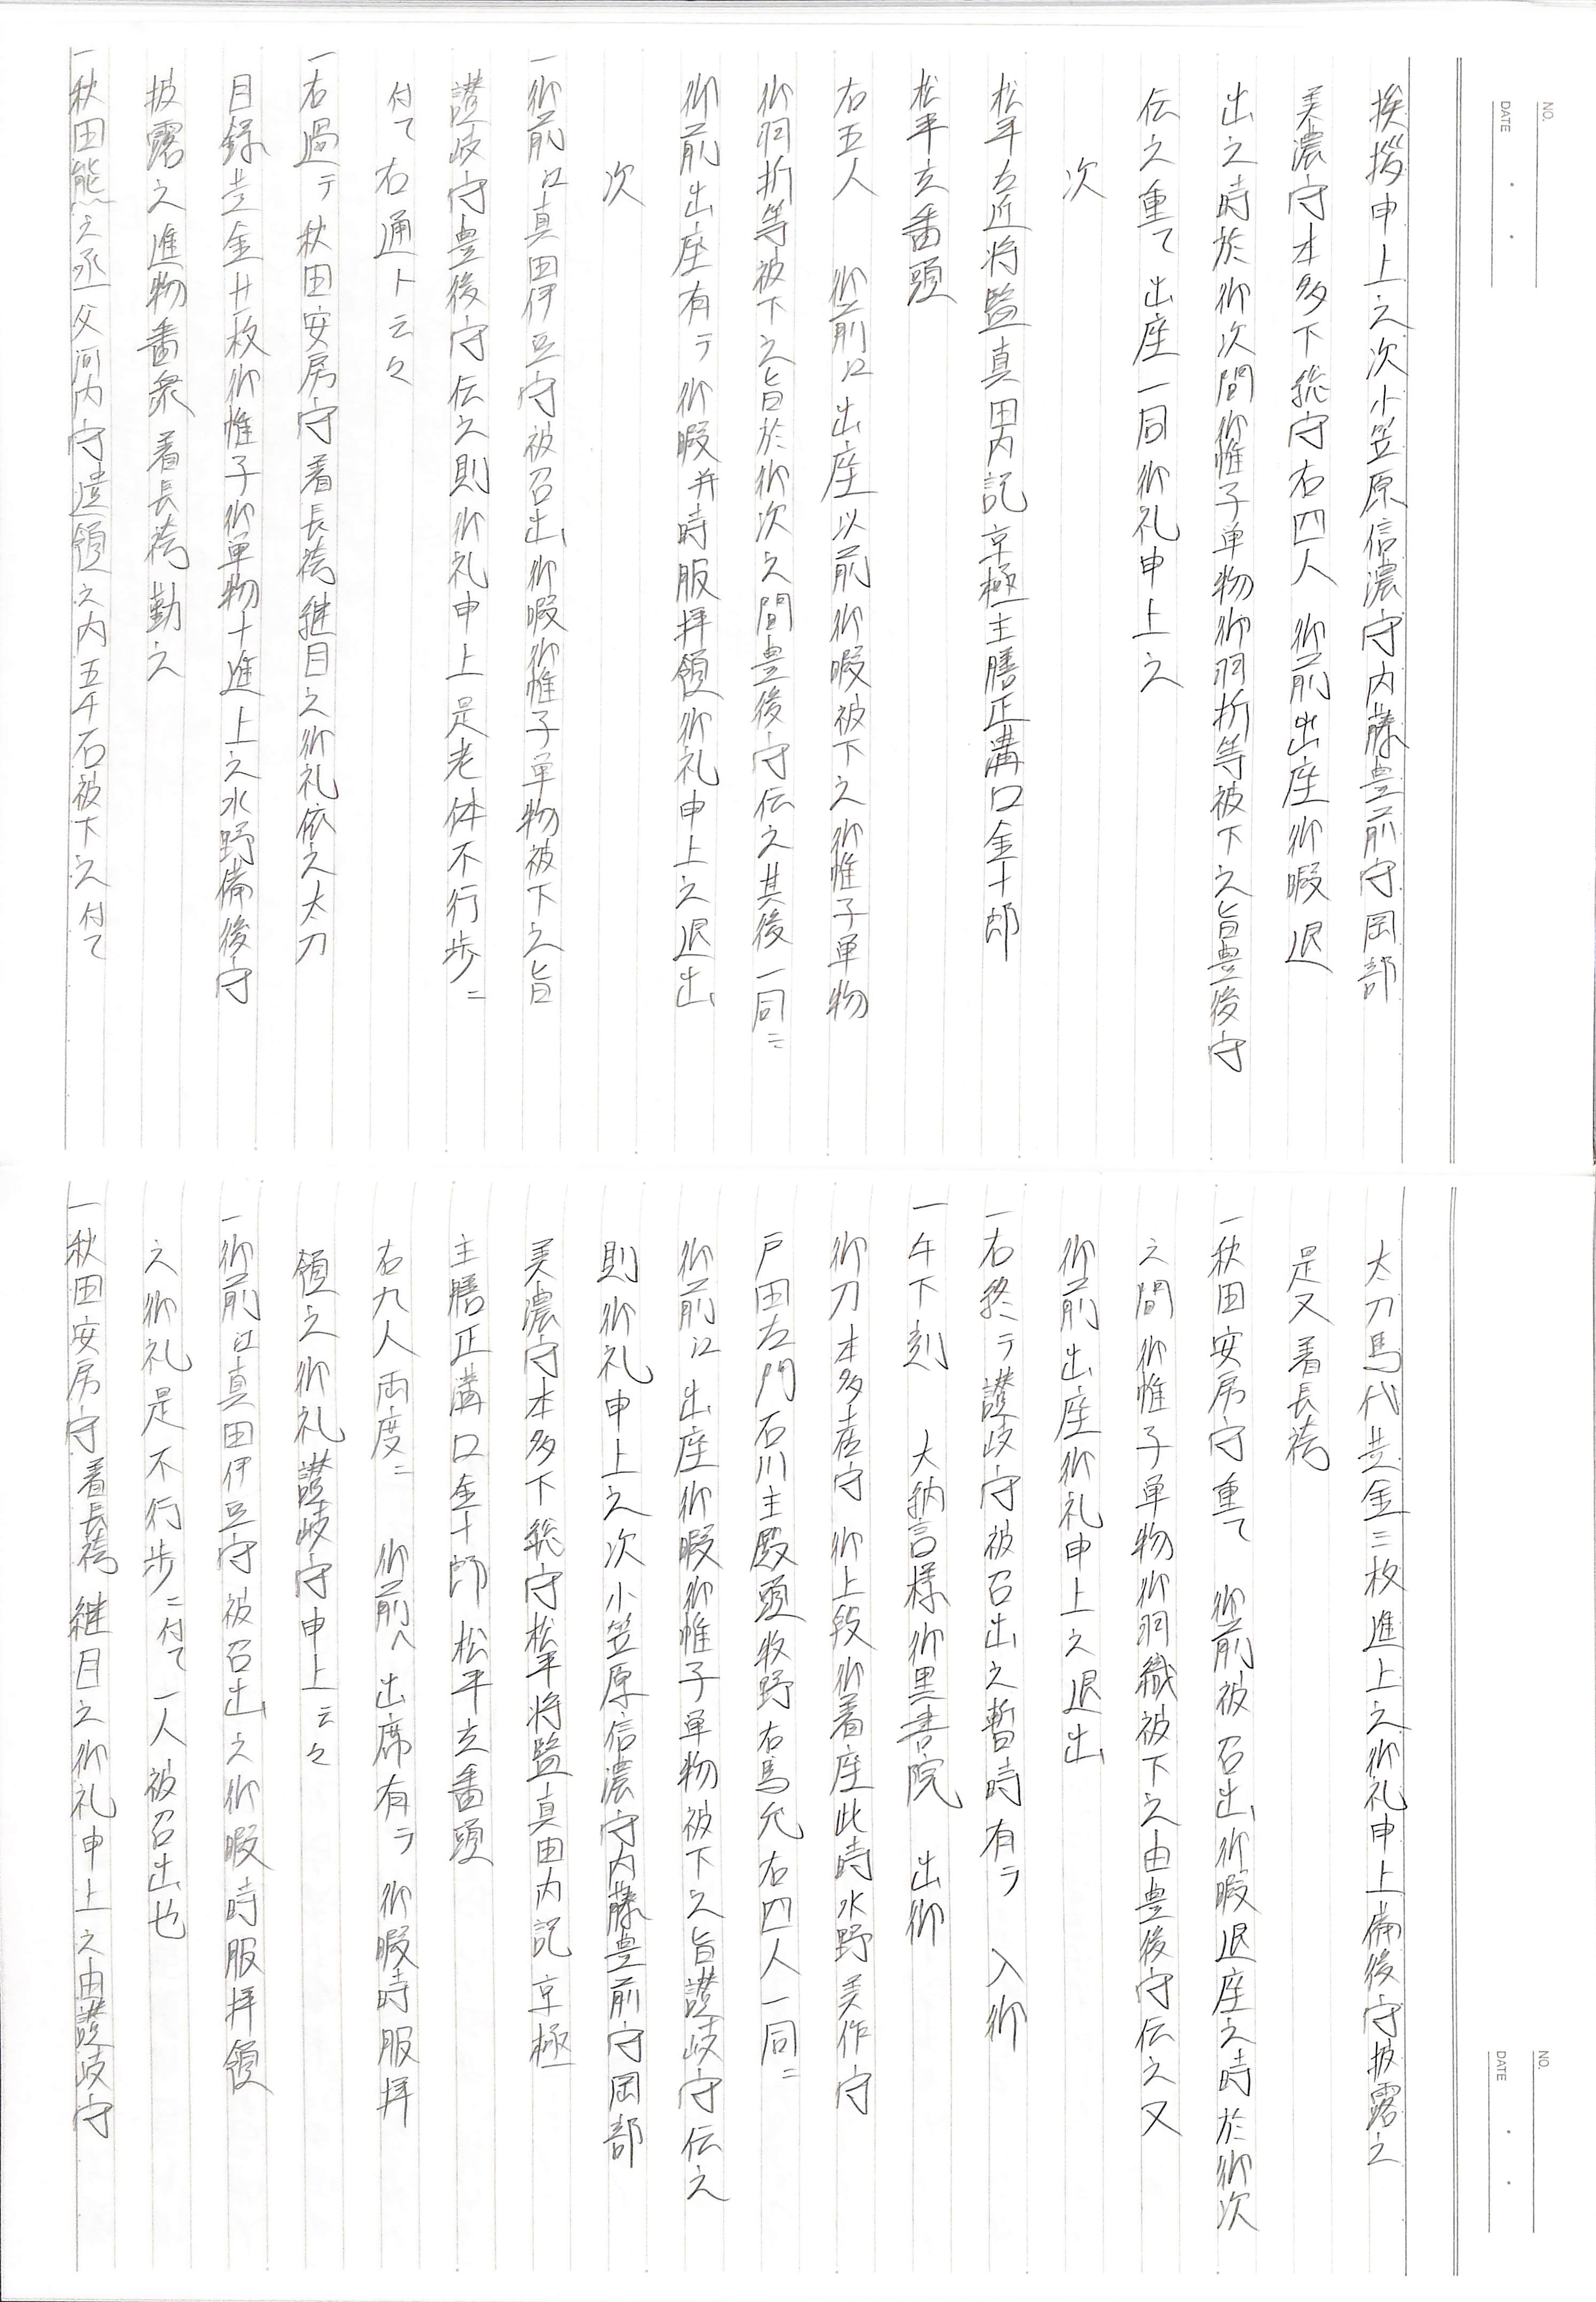 NO.
DATE
挨拶申上之次小笠原信濃守内藤豊前守岡部
美濃守本多下総守右四人　御前出座御暇退
出之時於御次間御帷子単物御羽折等被下之旨豊後守
伝之重て出座一同御礼申上之
次
松平左近将監真田内記京極主膳正溝口金十郎
松平玄番頭
右五人　御前江出座以前御暇被下之御帷子単物
御羽折等被下之旨於御次之間豊後守伝之其後一同ニ
御前出座有テ御暇并時服拝領御礼申上之退出
次
一御前江真田伊豆守被召出御暇御帷子単物被下之旨
讃岐守豊後守伝之則御礼申上是老体不行歩ニ
付て右通ト云々
一右過テ秋田安房守着長袴継目之御礼依之太刀
目録並金廿枚御帷子御単物十進上之水野備後守
披露之進物番衆着長袴勤之
一秋田熊之丞父河内守遺領之内五千石被下之付て
NO.
DATE
太刀馬代並金三枚進上之御礼申上備後守披露之
是又着長袴
一秋田安房守重て　御前被召出御暇退座之時於御次
之間御帷子単物御羽織被下之由豊後守伝之又
御前出座御礼申上之退出
一右終テ讃岐守被召出之暫時有テ　入御
一午下刻　大納言様御黒書院　出御
御刀本多土佐守御上段御着座此時水野美作守
戸田左門石川主殿頭牧野右馬允右四人一同ニ
御前江出座御暇御帷子単物被下之旨讃岐守伝之
則御礼申上之次小笠原信濃守内藤豊前守岡部
美濃守本多下総守松平将監真田内記京極
主膳正溝口金十郎松平玄番頭
右九人両度ニ　御前へ出席有テ御暇時服拝
領之御礼讃岐守申上云々
一御前江真田伊豆守被召出之御暇時服拝領
之御礼是不行歩ニ付て一人被召出也
一秋田安房守着長袴継目之御礼申上之由讃岐守